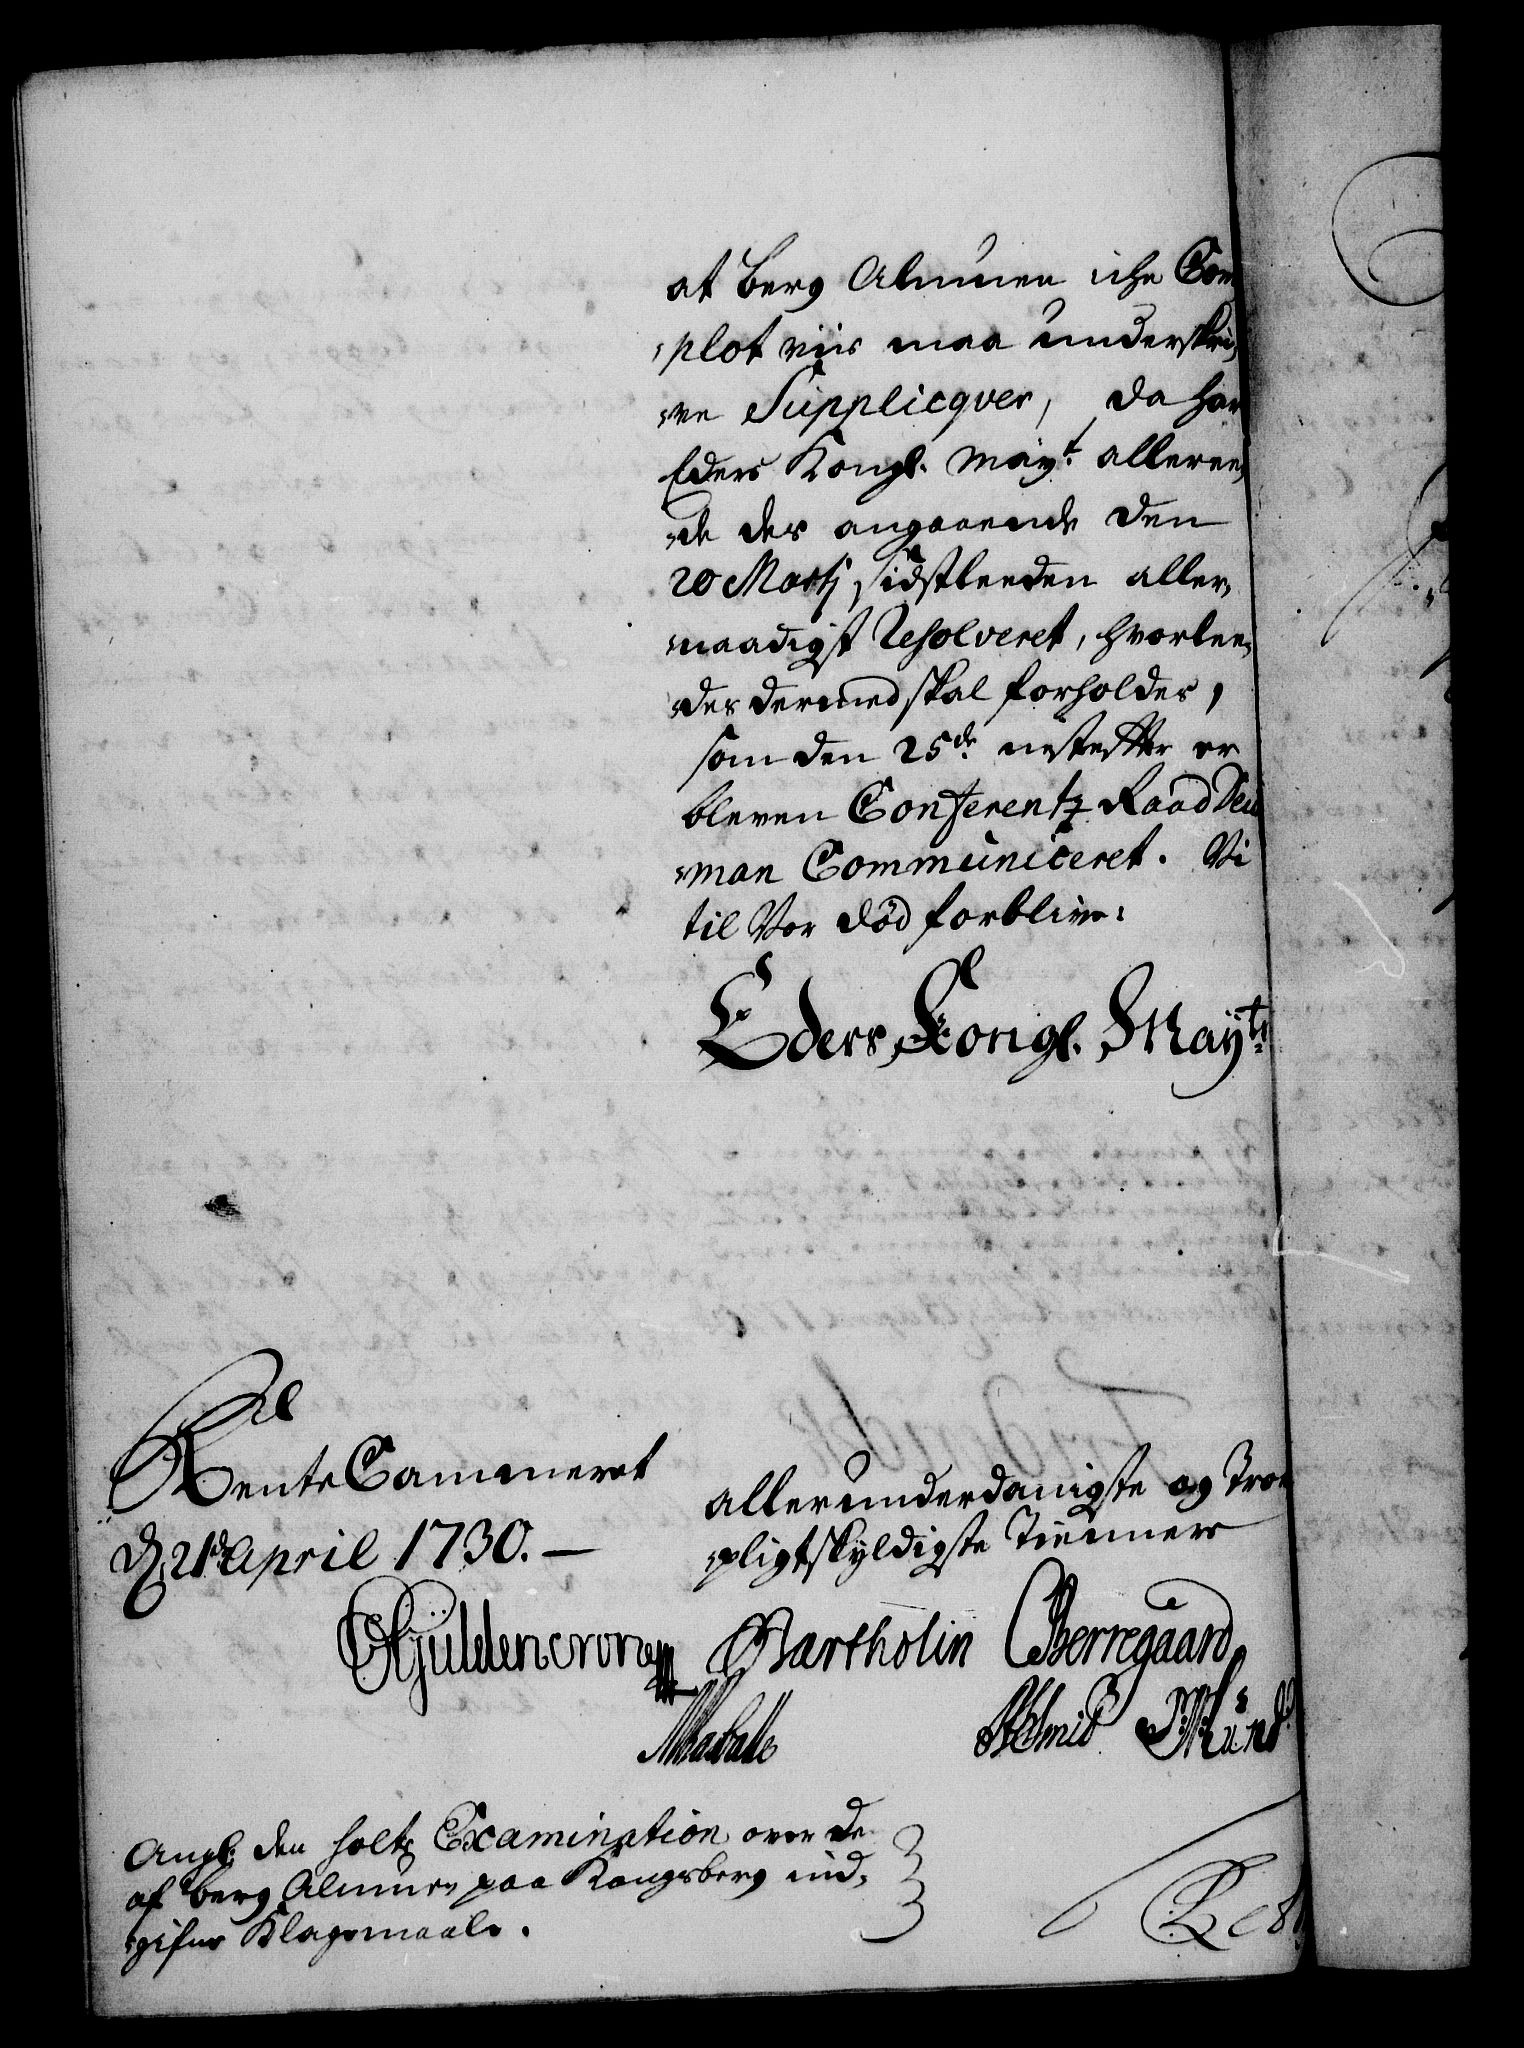 at berg Almuen iche Com
plot viis maa underskri,
ve Supplicqver, da har
Eders Kongl. Mayt. alleree,
de des angaaende den
20 Martj sidstleeden aller,
naadigst Resolveret, hvorlee,
des dermed skal forholdes,
som den 25de nestefter er
bleven Conferentz Raad Neu
man Communiceret. Vi
til Vor død forblive:
Eders Kongl. Mayts:
Rente Cammeret
d. 21de April 1730. —
allerunderdanigste og Troe
pligtskyldigste Tienners
Gÿldencrone Bartholin Berregaard
Angl: den holte Examination over de
af berg Almuen paa Kongsberg ind,
gifne Klagemaale.